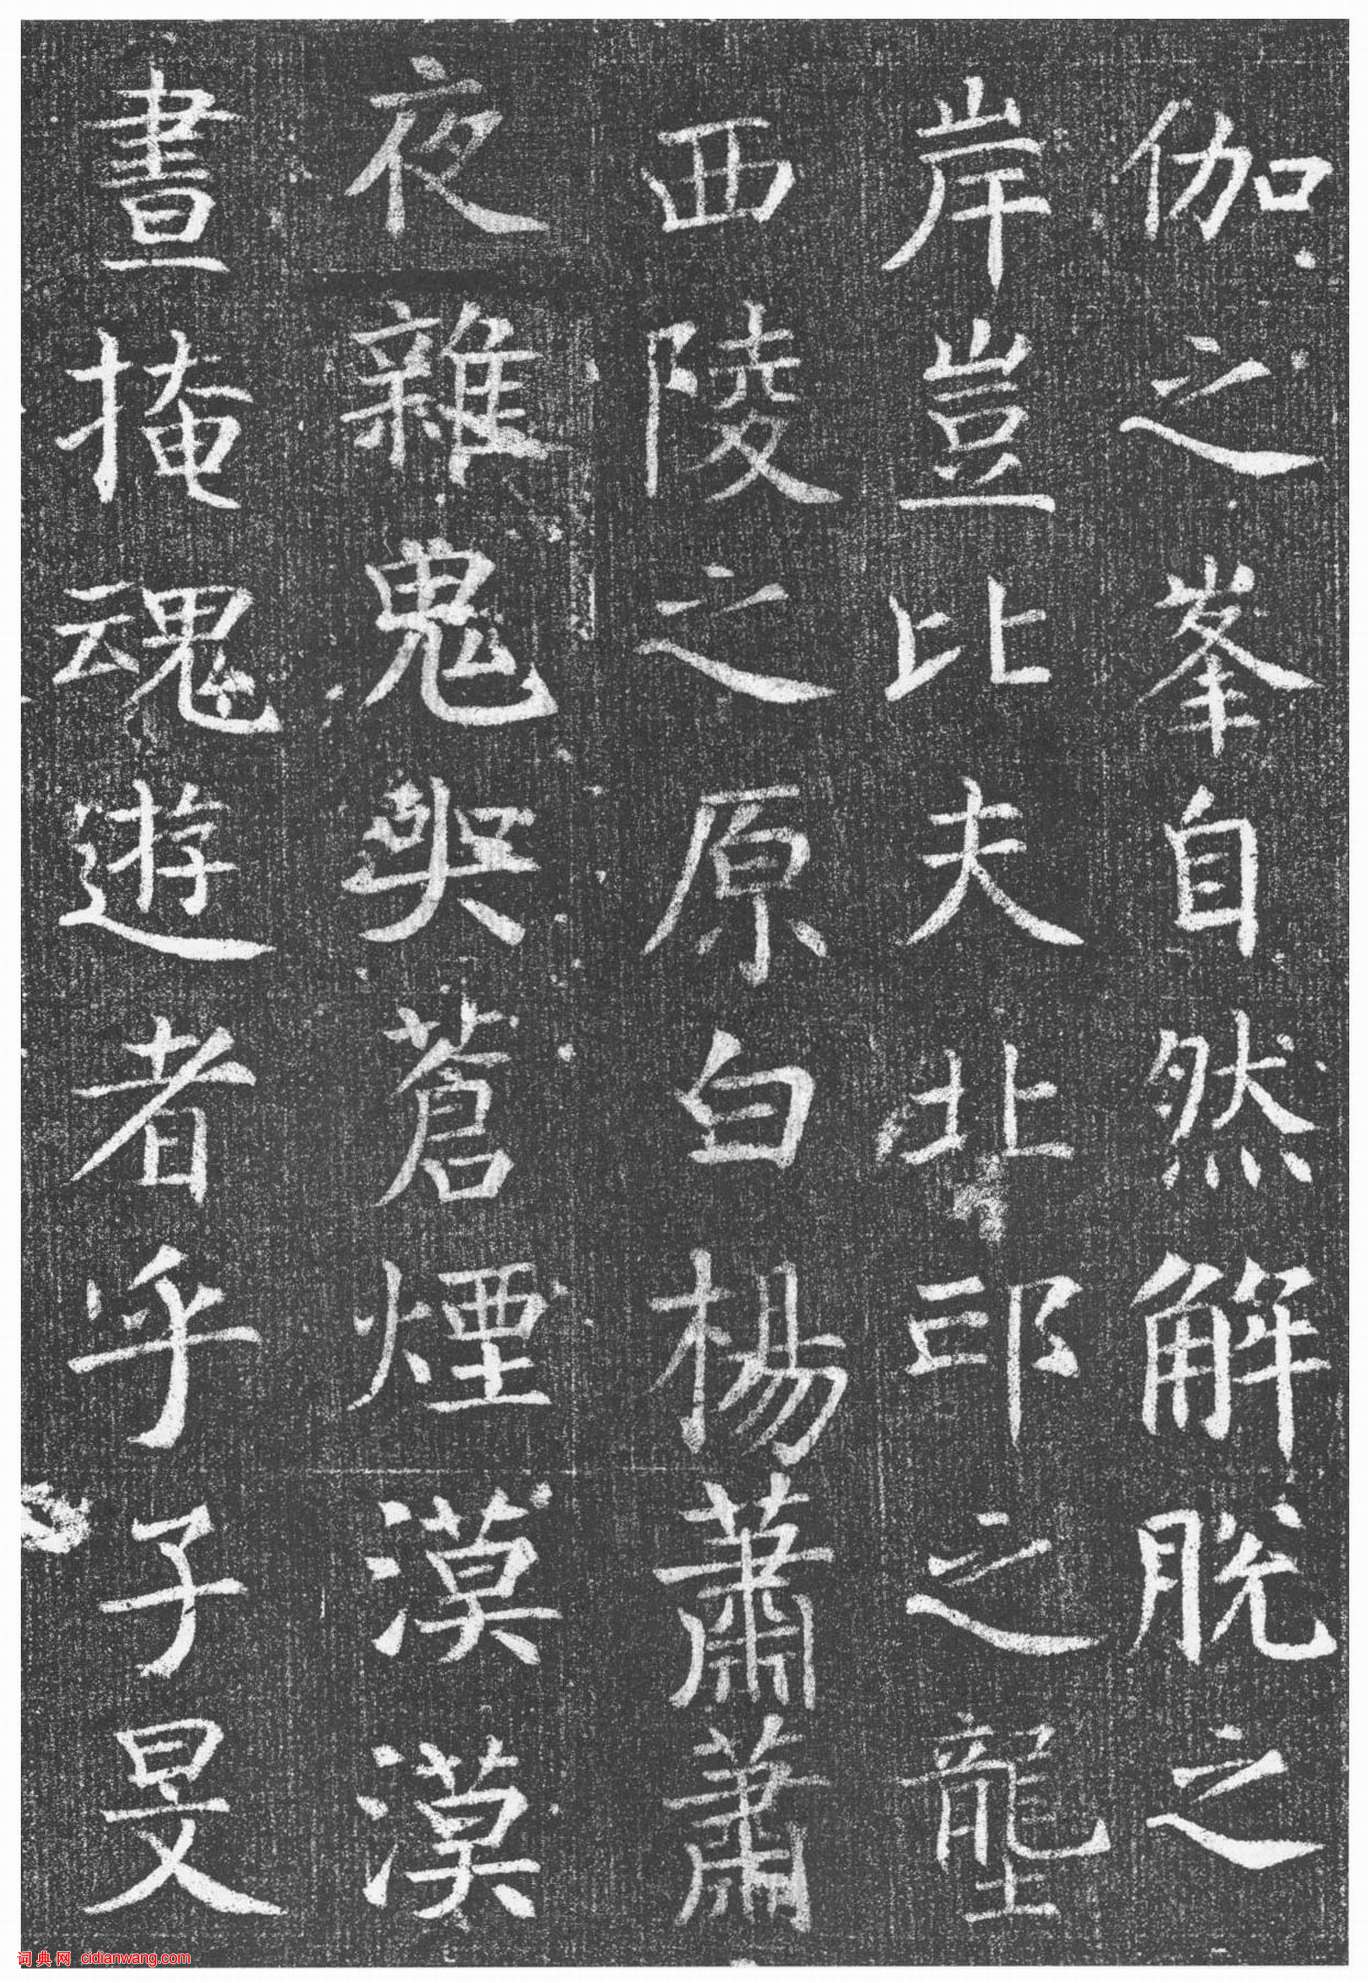 伽之峯自然解脱之
岸豈比夫北邙之壠
西陵之原白楊蕭蕭
夜雜鬼哭蒼煙漠漠
晝掩魂遊者乎子旻
词典网 cidianwang.com